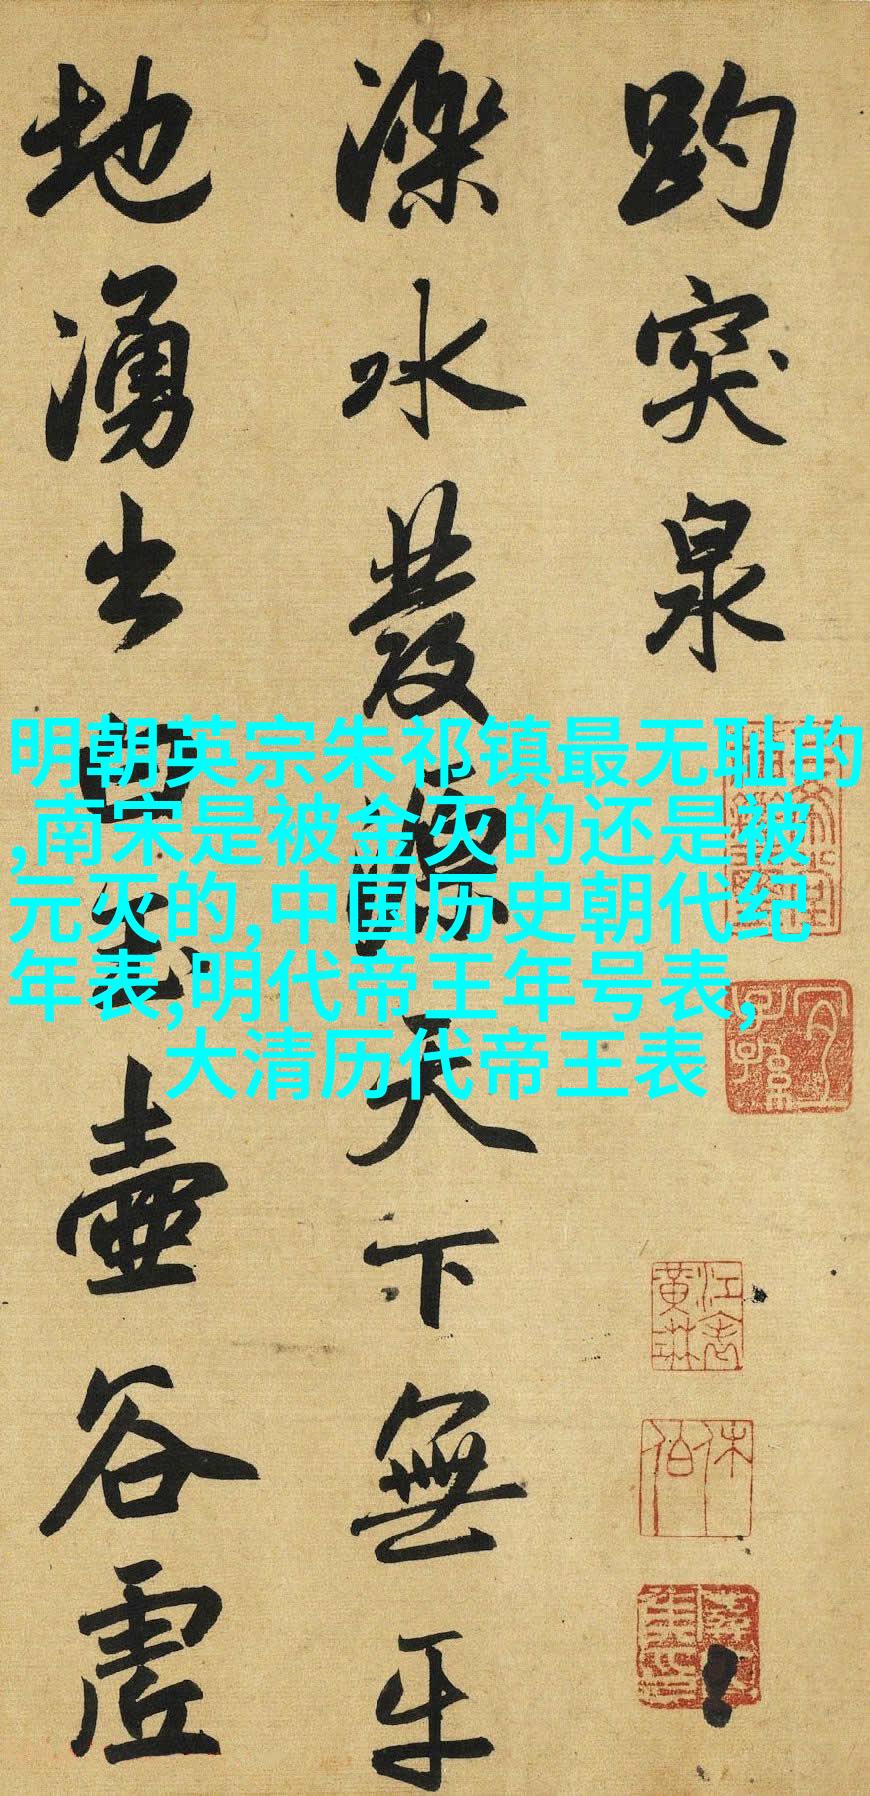 趵突泉
濼水發源天下無平
地湧出白玉壺谷虛
明朝英宗朱祁镇最无耻的
,南宋是被金灭的还是被
元灭的,中国历史朝代纪
年表,明代帝王年号表,
大清历代帝王表
江表黃琳
休伯